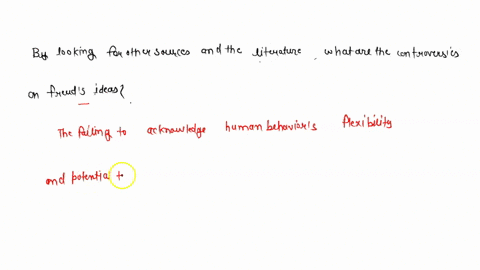 By looking for other sources and the literature, what are the controversies
on freud's ideas?
The failing to acknowledge human behavior's flexibility
and potential t